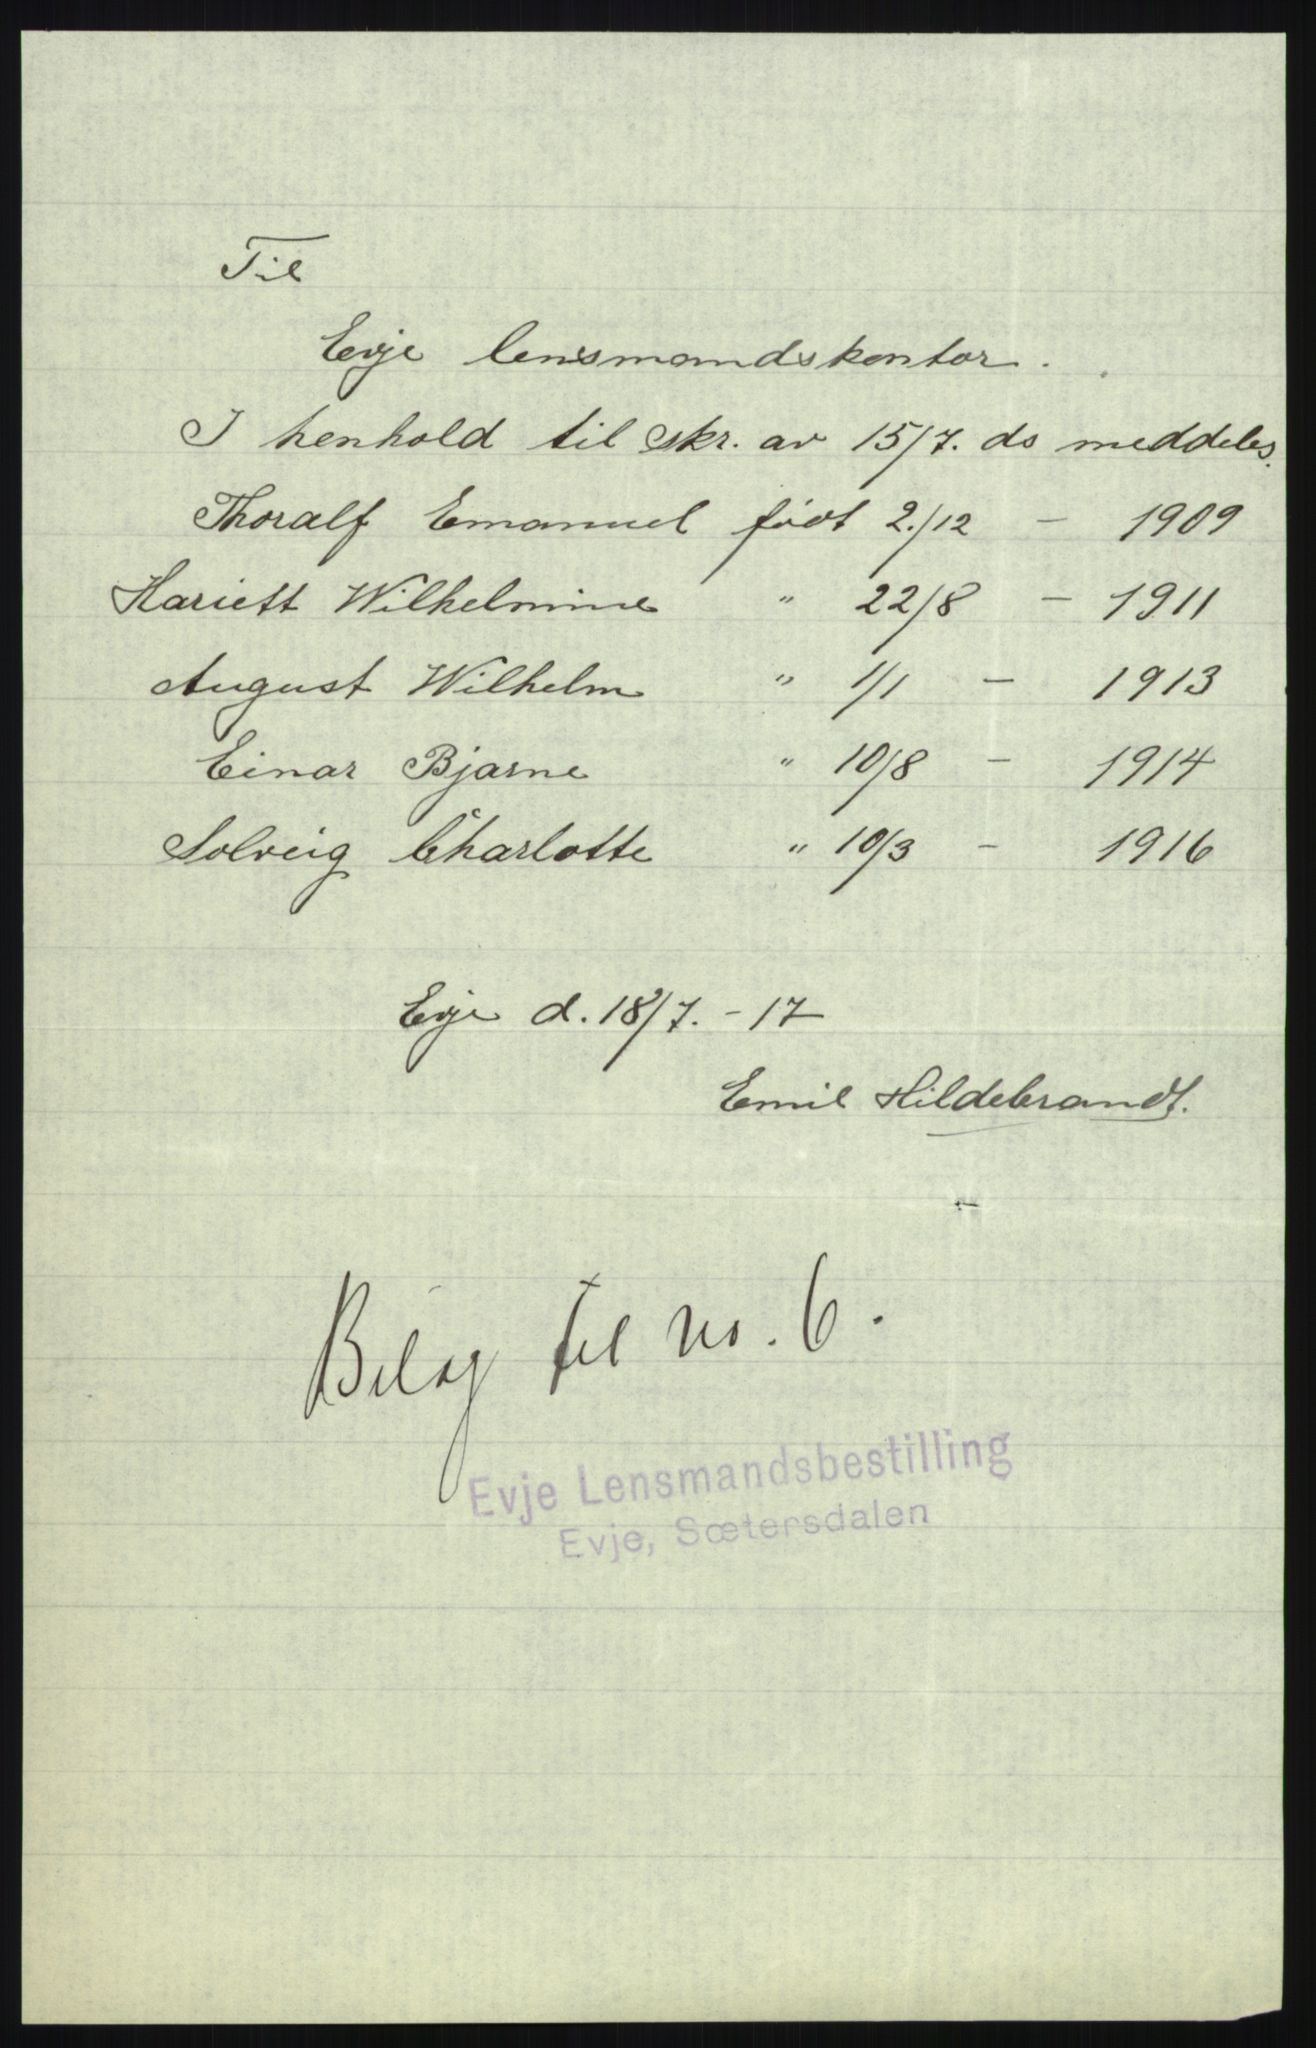 Til
Evje lensmandskontor.
I henhold til skr. av 15/7. ds meddeles.
Thoralf Emanuel født 2./12 – 1909
Hariett Wilhelmine " 22/8 – 1911
August Wilhelm " 1/1 – 1913
Einar Bjarne " 10/8 – 1914
Solveig Charlotte " 10/3 – 1916
Evje d. 18/7. – 17
Emil Hildebrandt.
Bilag til no. 6.
Evje Lensmandsbestilling
Evje, Sætersdalen